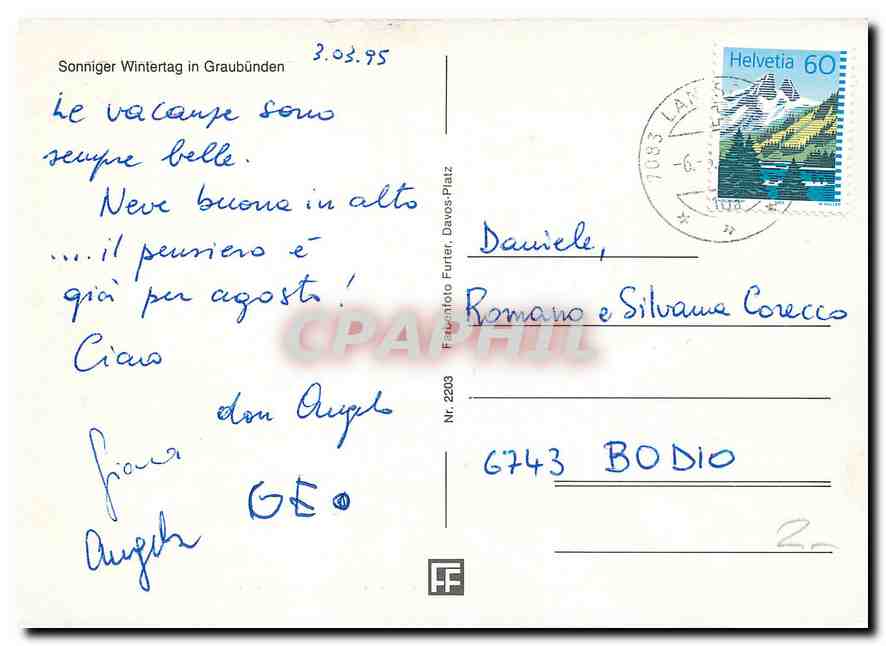 Sonniger Wintertag in Graubünden
3.03.95
Le vacanze sono
sempre belle.
Neve buona in alto
....il pensiero è
già per agosto!
Ciao
don Angelo
Giana
GEO
Angela
Nr. 2203 Farbenfoto Furter, Davos-Platz
FF
Helvetia 60
7083 LAN
-6.-
Daniele,
Romano e Silvana Corecco
6743 BODIO
2.-
CPAPHIL